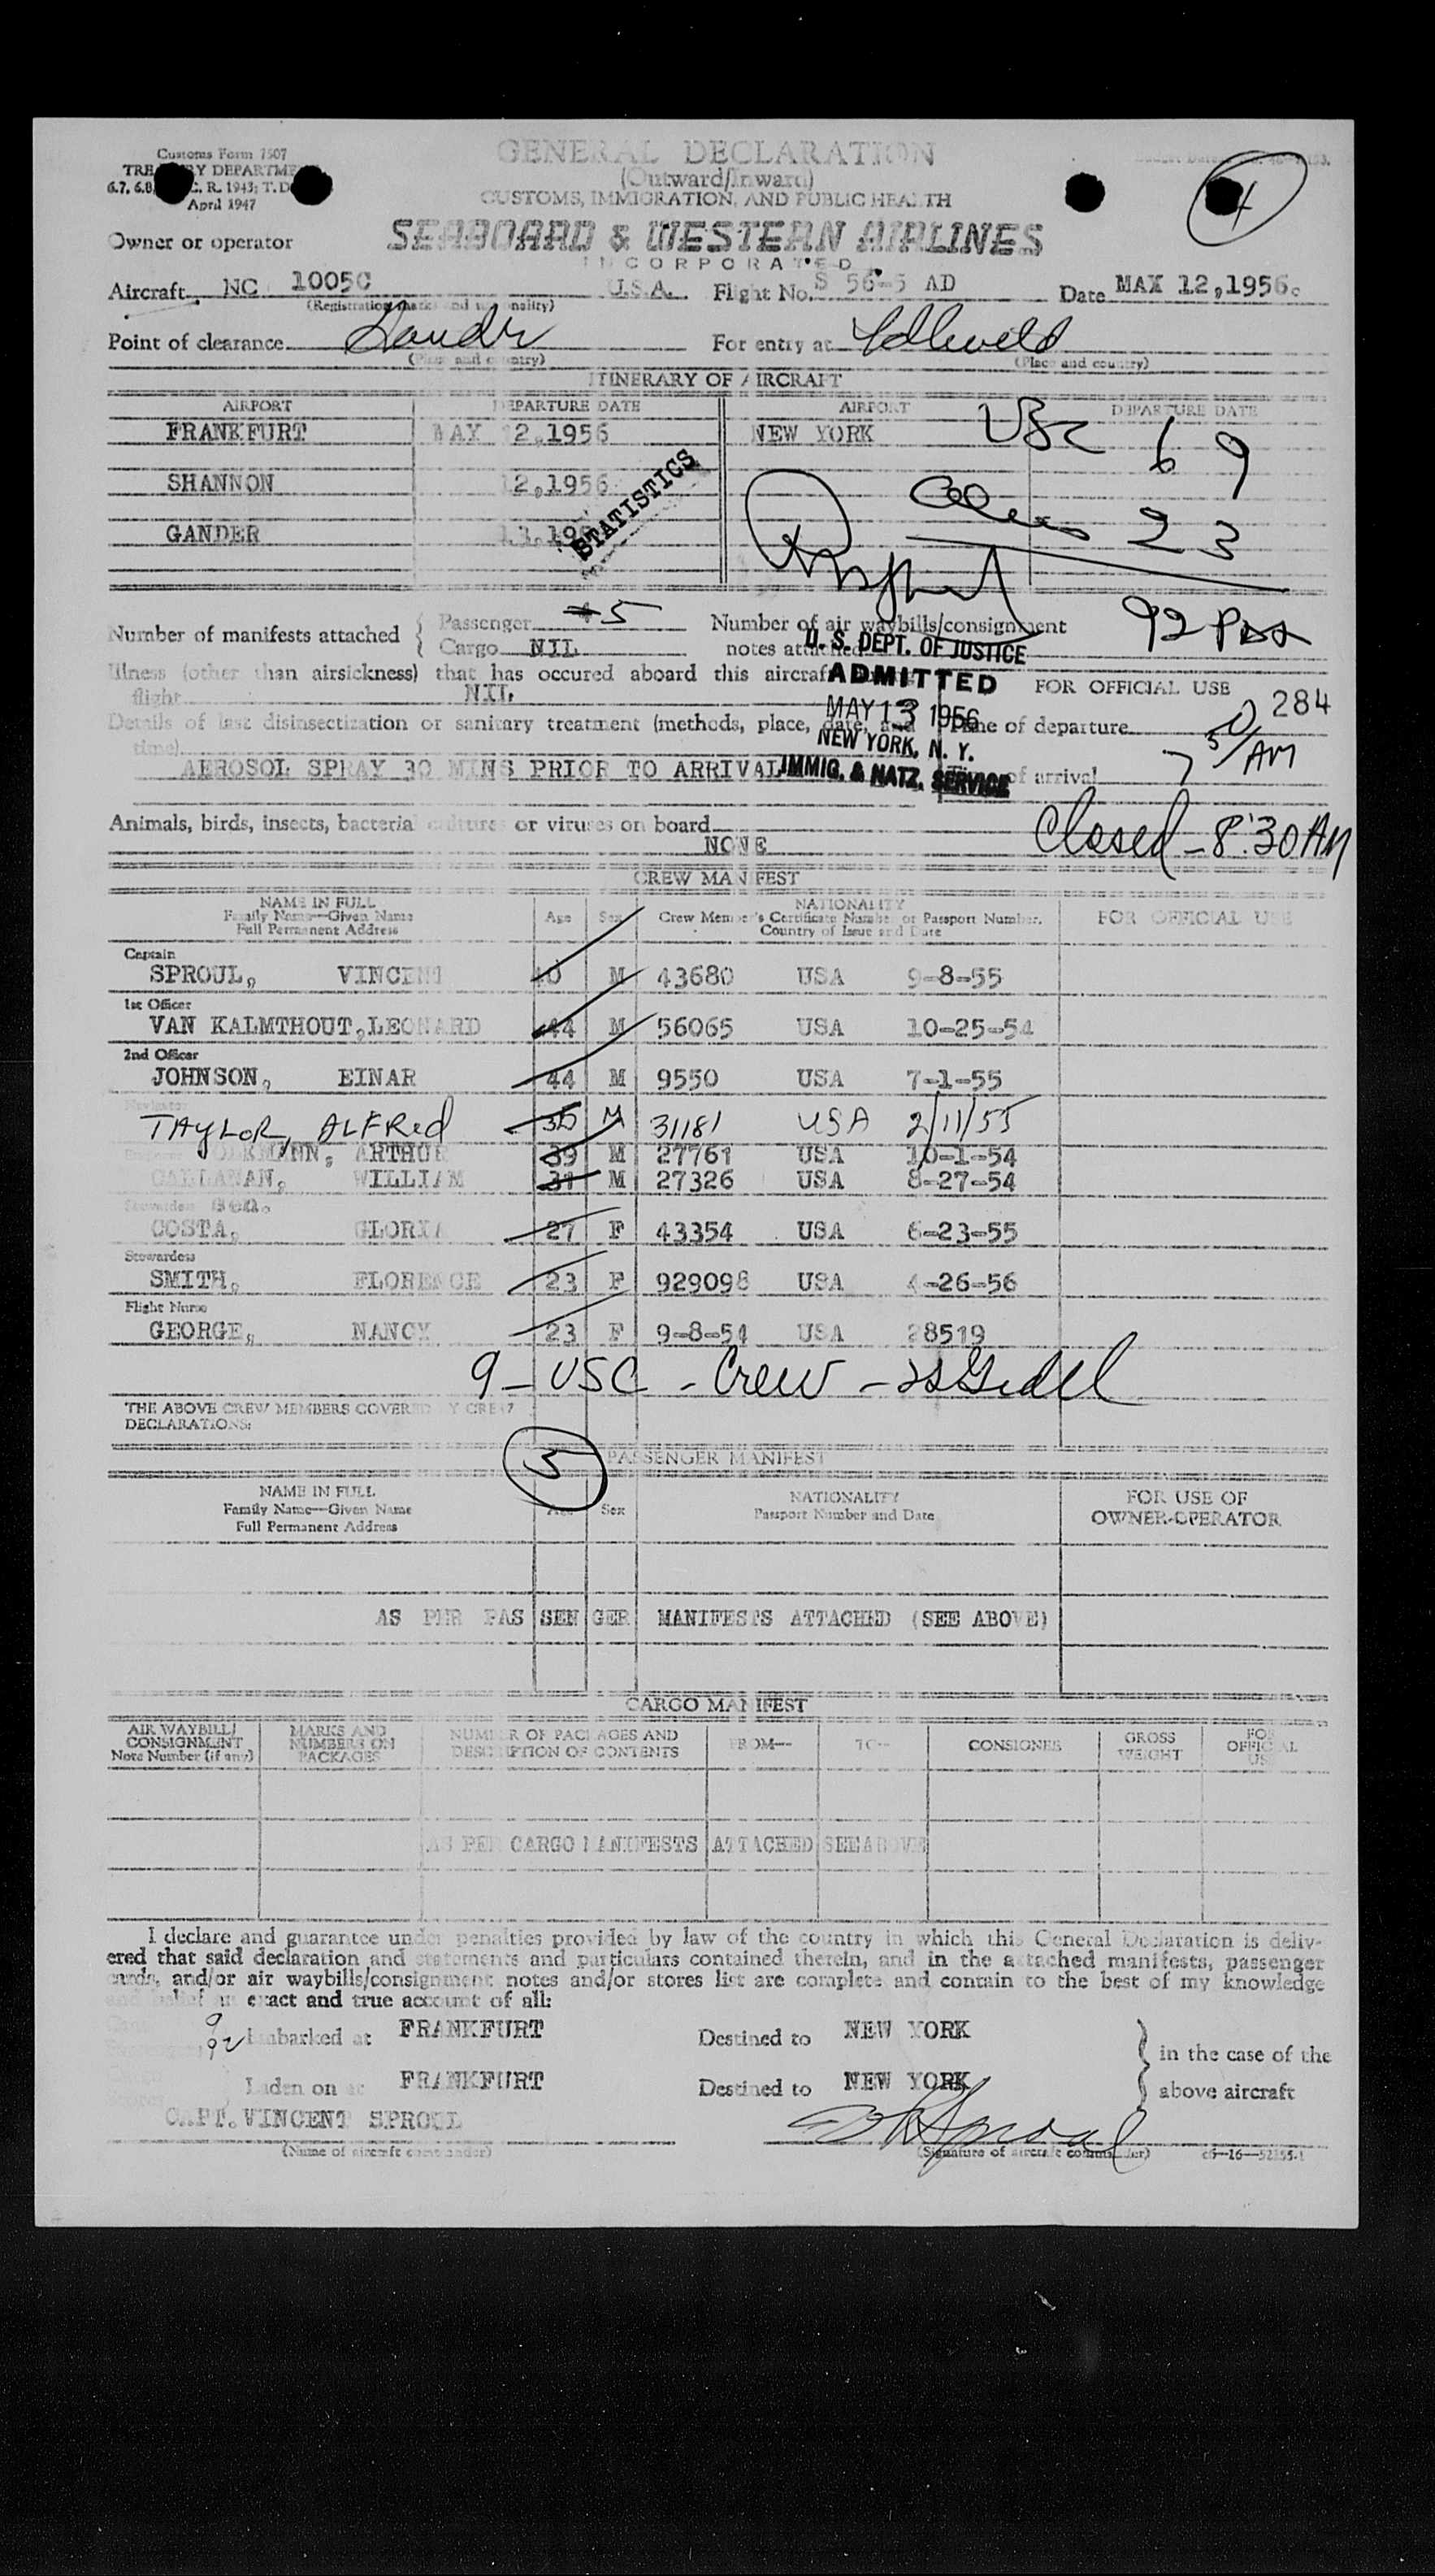 Customs Form 7507
TREASURY DEPARTMENT
April 1947
4
GENERAL DECLARATION
(Outward/Inward)
CUSTOMS, IMMIGRATION, AND PUBLIC HEALTH
Owner or operator SEABOARD & WESTERN AIRLINES
INCORPORATED
Aircraft NC 1005C U.S.A. Flight No. S 56-5 AD Date MAX 12,1956.
(Registration marks and nationality)
Point of clearance Gander For entry at Idlewild
(Place and country) (Place and country)
ITINERARY OF AIRCRAFT
AIRPORT DEPARTURE DATE AIRPORT DEPARTURE DATE
FRANKFURT MAY 12,1956 NEW YORK USC 69
SHANNON 12,1956 Aliens 23
GANDER 13,195
STATISTICS
92 Pass
Number of manifests attached { Passenger 5 Number of air waybills/consignment
Cargo NIL notes attached
U. S. DEPT. OF JUSTICE
ADMITTED
MAY 13 1956
NEW YORK, N. Y.
IMMIG. & NATZ. SERVICE
Illness (other than airsickness) that has occured aboard this aircraft
flight NIL
FOR OFFICIAL USE 284
Details of last disinsectization or sanitary treatment (methods, place, date, and Time of departure
time)
AEROSOL SPRAY 30 MINS PRIOR TO ARRIVAL of arrival 7 50/AM
Animals, birds, insects, bacterial cultures or viruses on board
NONE
Closed - 8:30 AM
CREW MANIFEST
NAME IN FULL NATIONALITY
Family Name—Given Name Age Sex Crew Member's Certificate Number or Passport Number. FOR OFFICIAL USE
Full Permanent Address Country of Issue and Date
Captain
SPROUL, VINCENT 40 M 43680 USA 9-8-55
1st Officer
VAN KALMTHOUT,LEONARD 44 M 56065 USA 10-25-54
2nd Officer
JOHNSON, EINAR 44 M 9550 USA 7-1-55
Navigator
TAYLOR, ALFRed 35 M 31181 USA 2/11/55
ARTHUR 39 M 27761 USA 10-1-54
CALLANAN, WILLIAM 31 M 27326 USA 8-27-54
Stewardess
COSTA, GLORIA 27 F 43354 USA 6-23-55
Stewardess
SMITH, FLORENCE 23 F 929098 USA 4-26-56
Flight Nurse
GEORGE, NANCY 23 F 9-8-54 USA 28519
9 - USC - Crew -
THE ABOVE CREW MEMBERS COVERED BY CREW
DECLARATIONS:
5
PASSENGER MANIFEST
NAME IN FULL NATIONALITY FOR USE OF
Family Name—Given Name Age Sex Passport Number and Date OWNER-OPERATOR
Full Permanent Address
AS PER PAS SEN GER MANIFESTS ATTACHED (SEE ABOVE)
CARGO MANIFEST
AIR WAYBILL/ MARKS AND NUMBER OF PACKAGES AND FROM— TO— CONSIGNEE GROSS FOR
CONSIGNMENT NUMBERS ON DESCRIPTION OF CONTENTS WEIGHT OFFICIAL
Note Number (if any) PACKAGES USE
AS PER CARGO MANIFESTS ATTACHED SEE ABOVE
I declare and guarantee under penalties provided by law of the country in which this General Declaration is deliv-
ered that said declaration and statements and particulars contained therein, and in the attached manifests, passenger
cards, and/or air waybills/consignment notes and/or stores list are complete and contain to the best of my knowledge
and belief an exact and true account of all:
Embarked at FRANKFURT Destined to NEW YORK
in the case of the
Laden on at FRANKFURT Destined to NEW YORK above aircraft
CAPT. VINCENT SPROUL
(Name of aircraft commander) (Signature of aircraft commander)